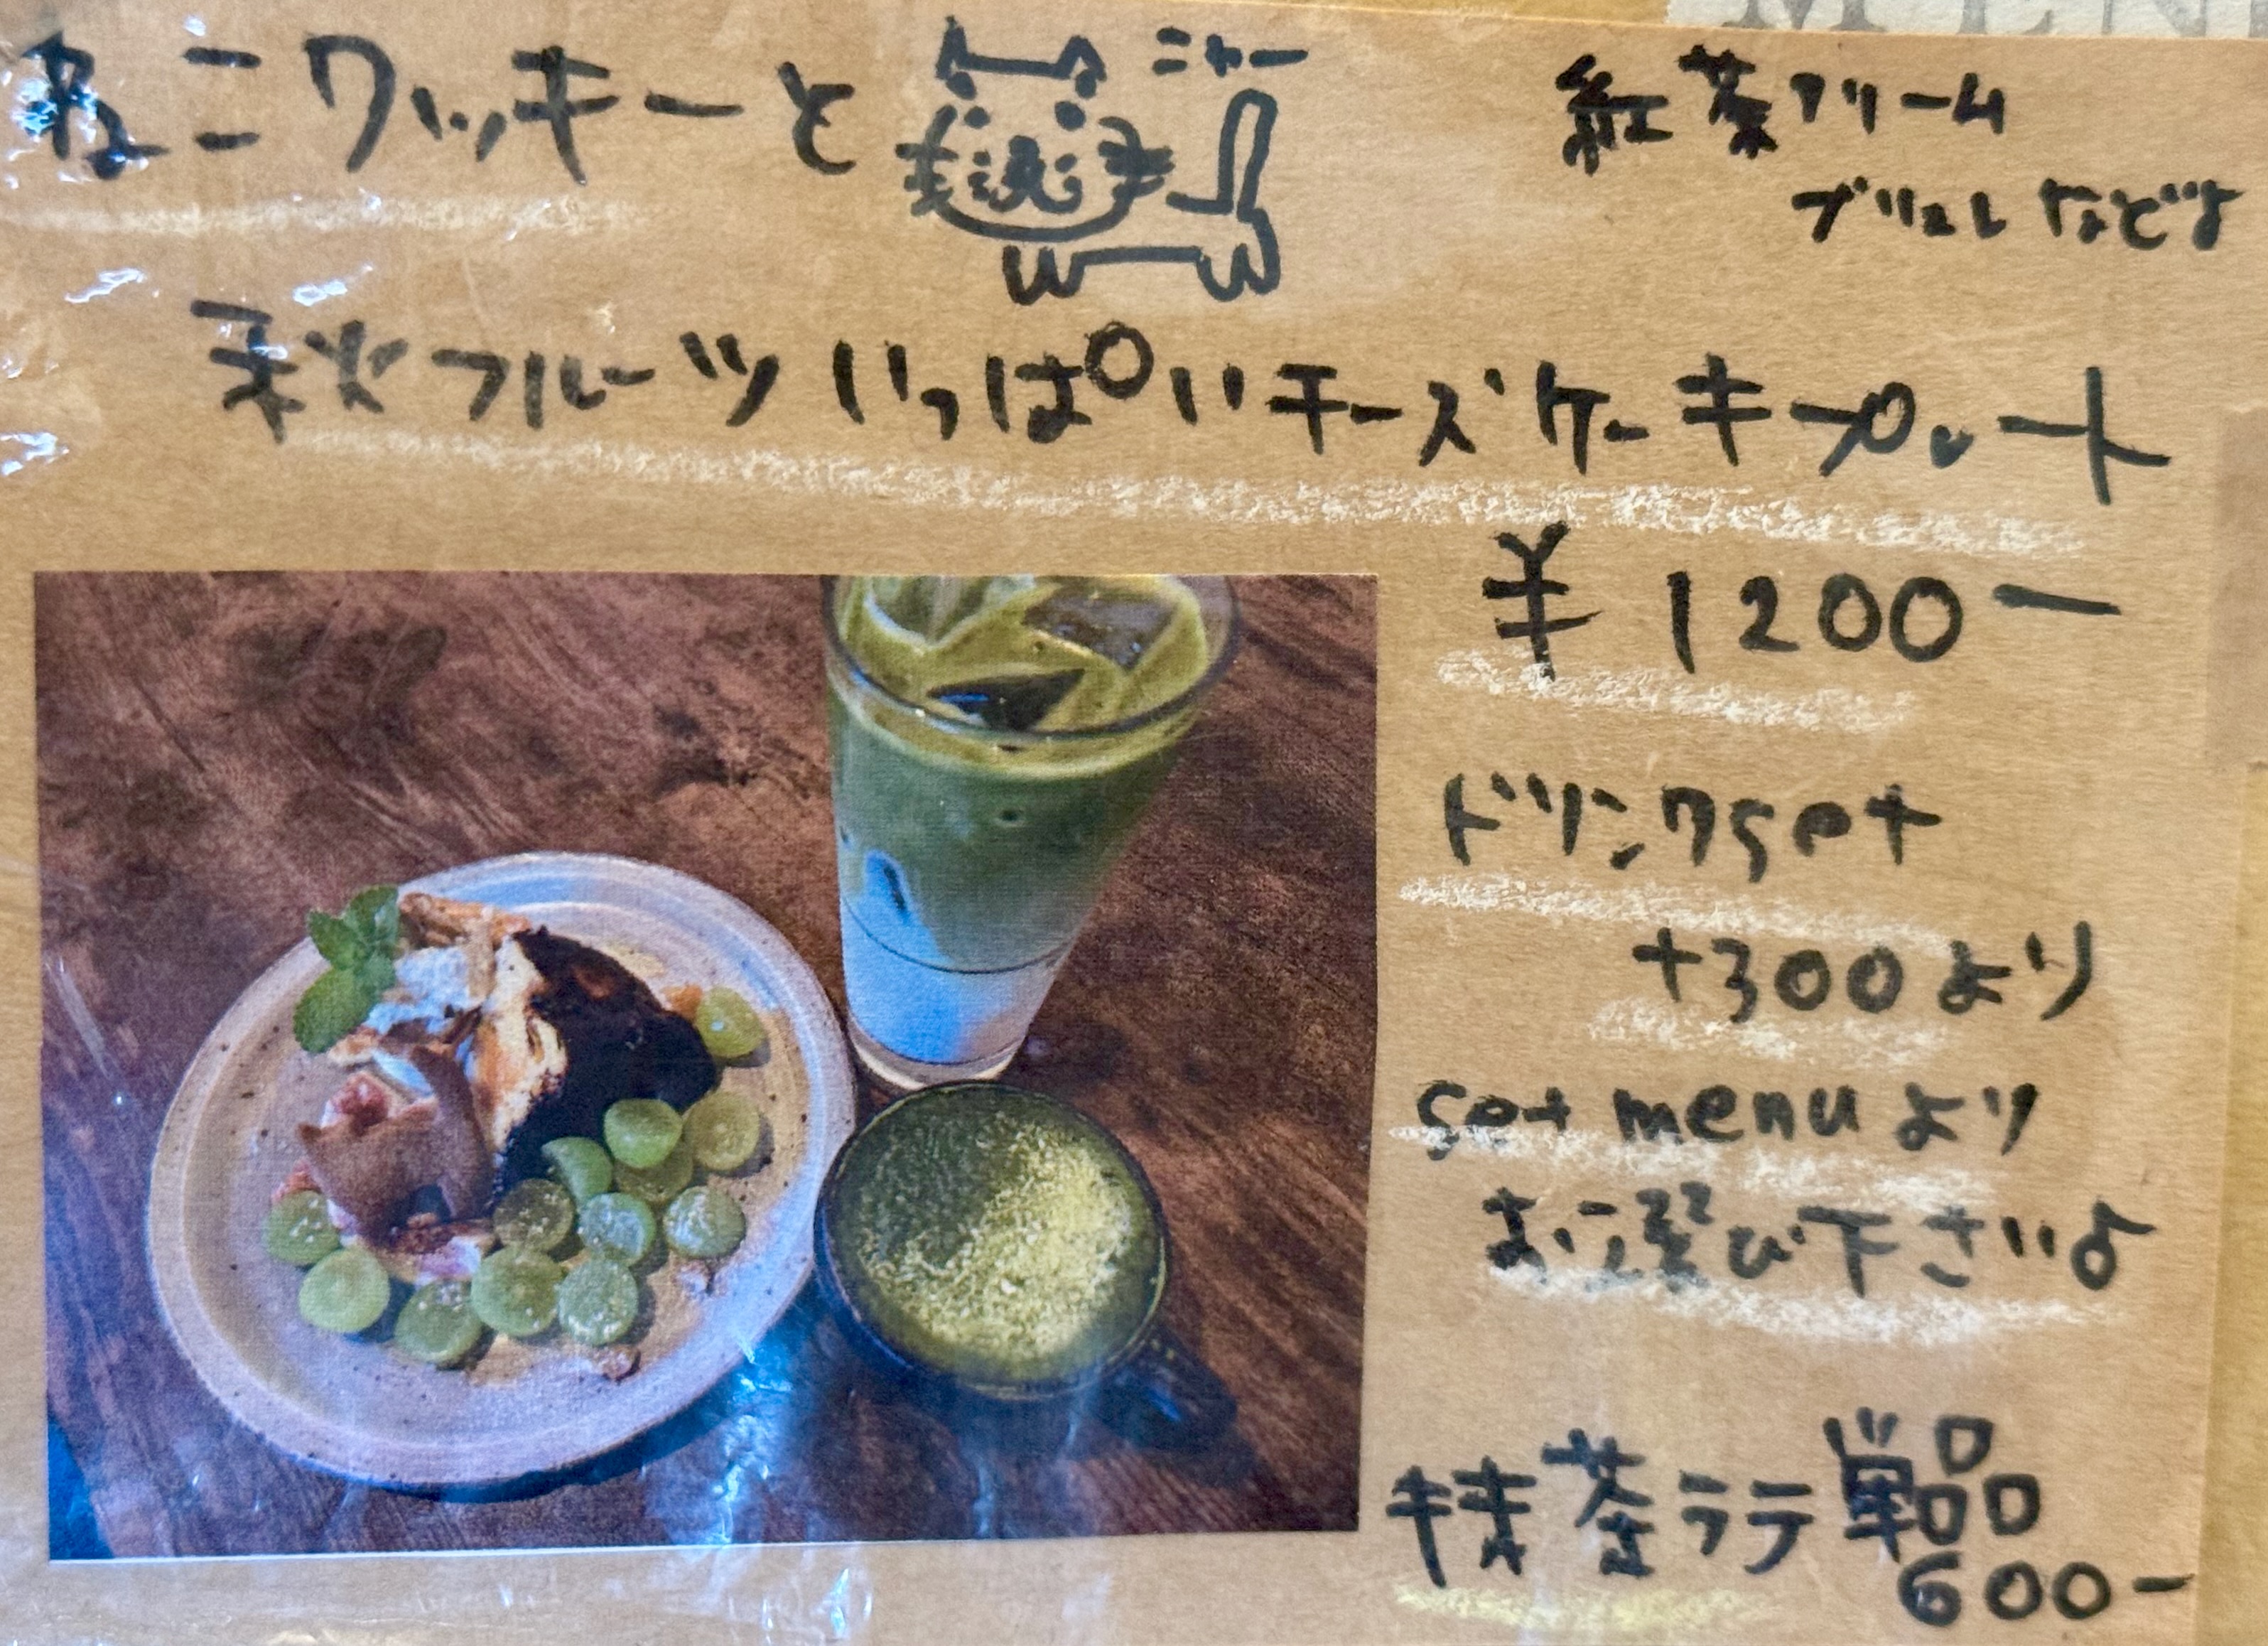 MEN
ねこクッキーと
ニャー
紅茶クリーム
ブリュレなどよ
秋フルーツいっぱいチーズケーキプレート
¥1200ー
ドリンクset
+300より
set menuより
お選び下さいよ
抹茶ラテ単品
600ー